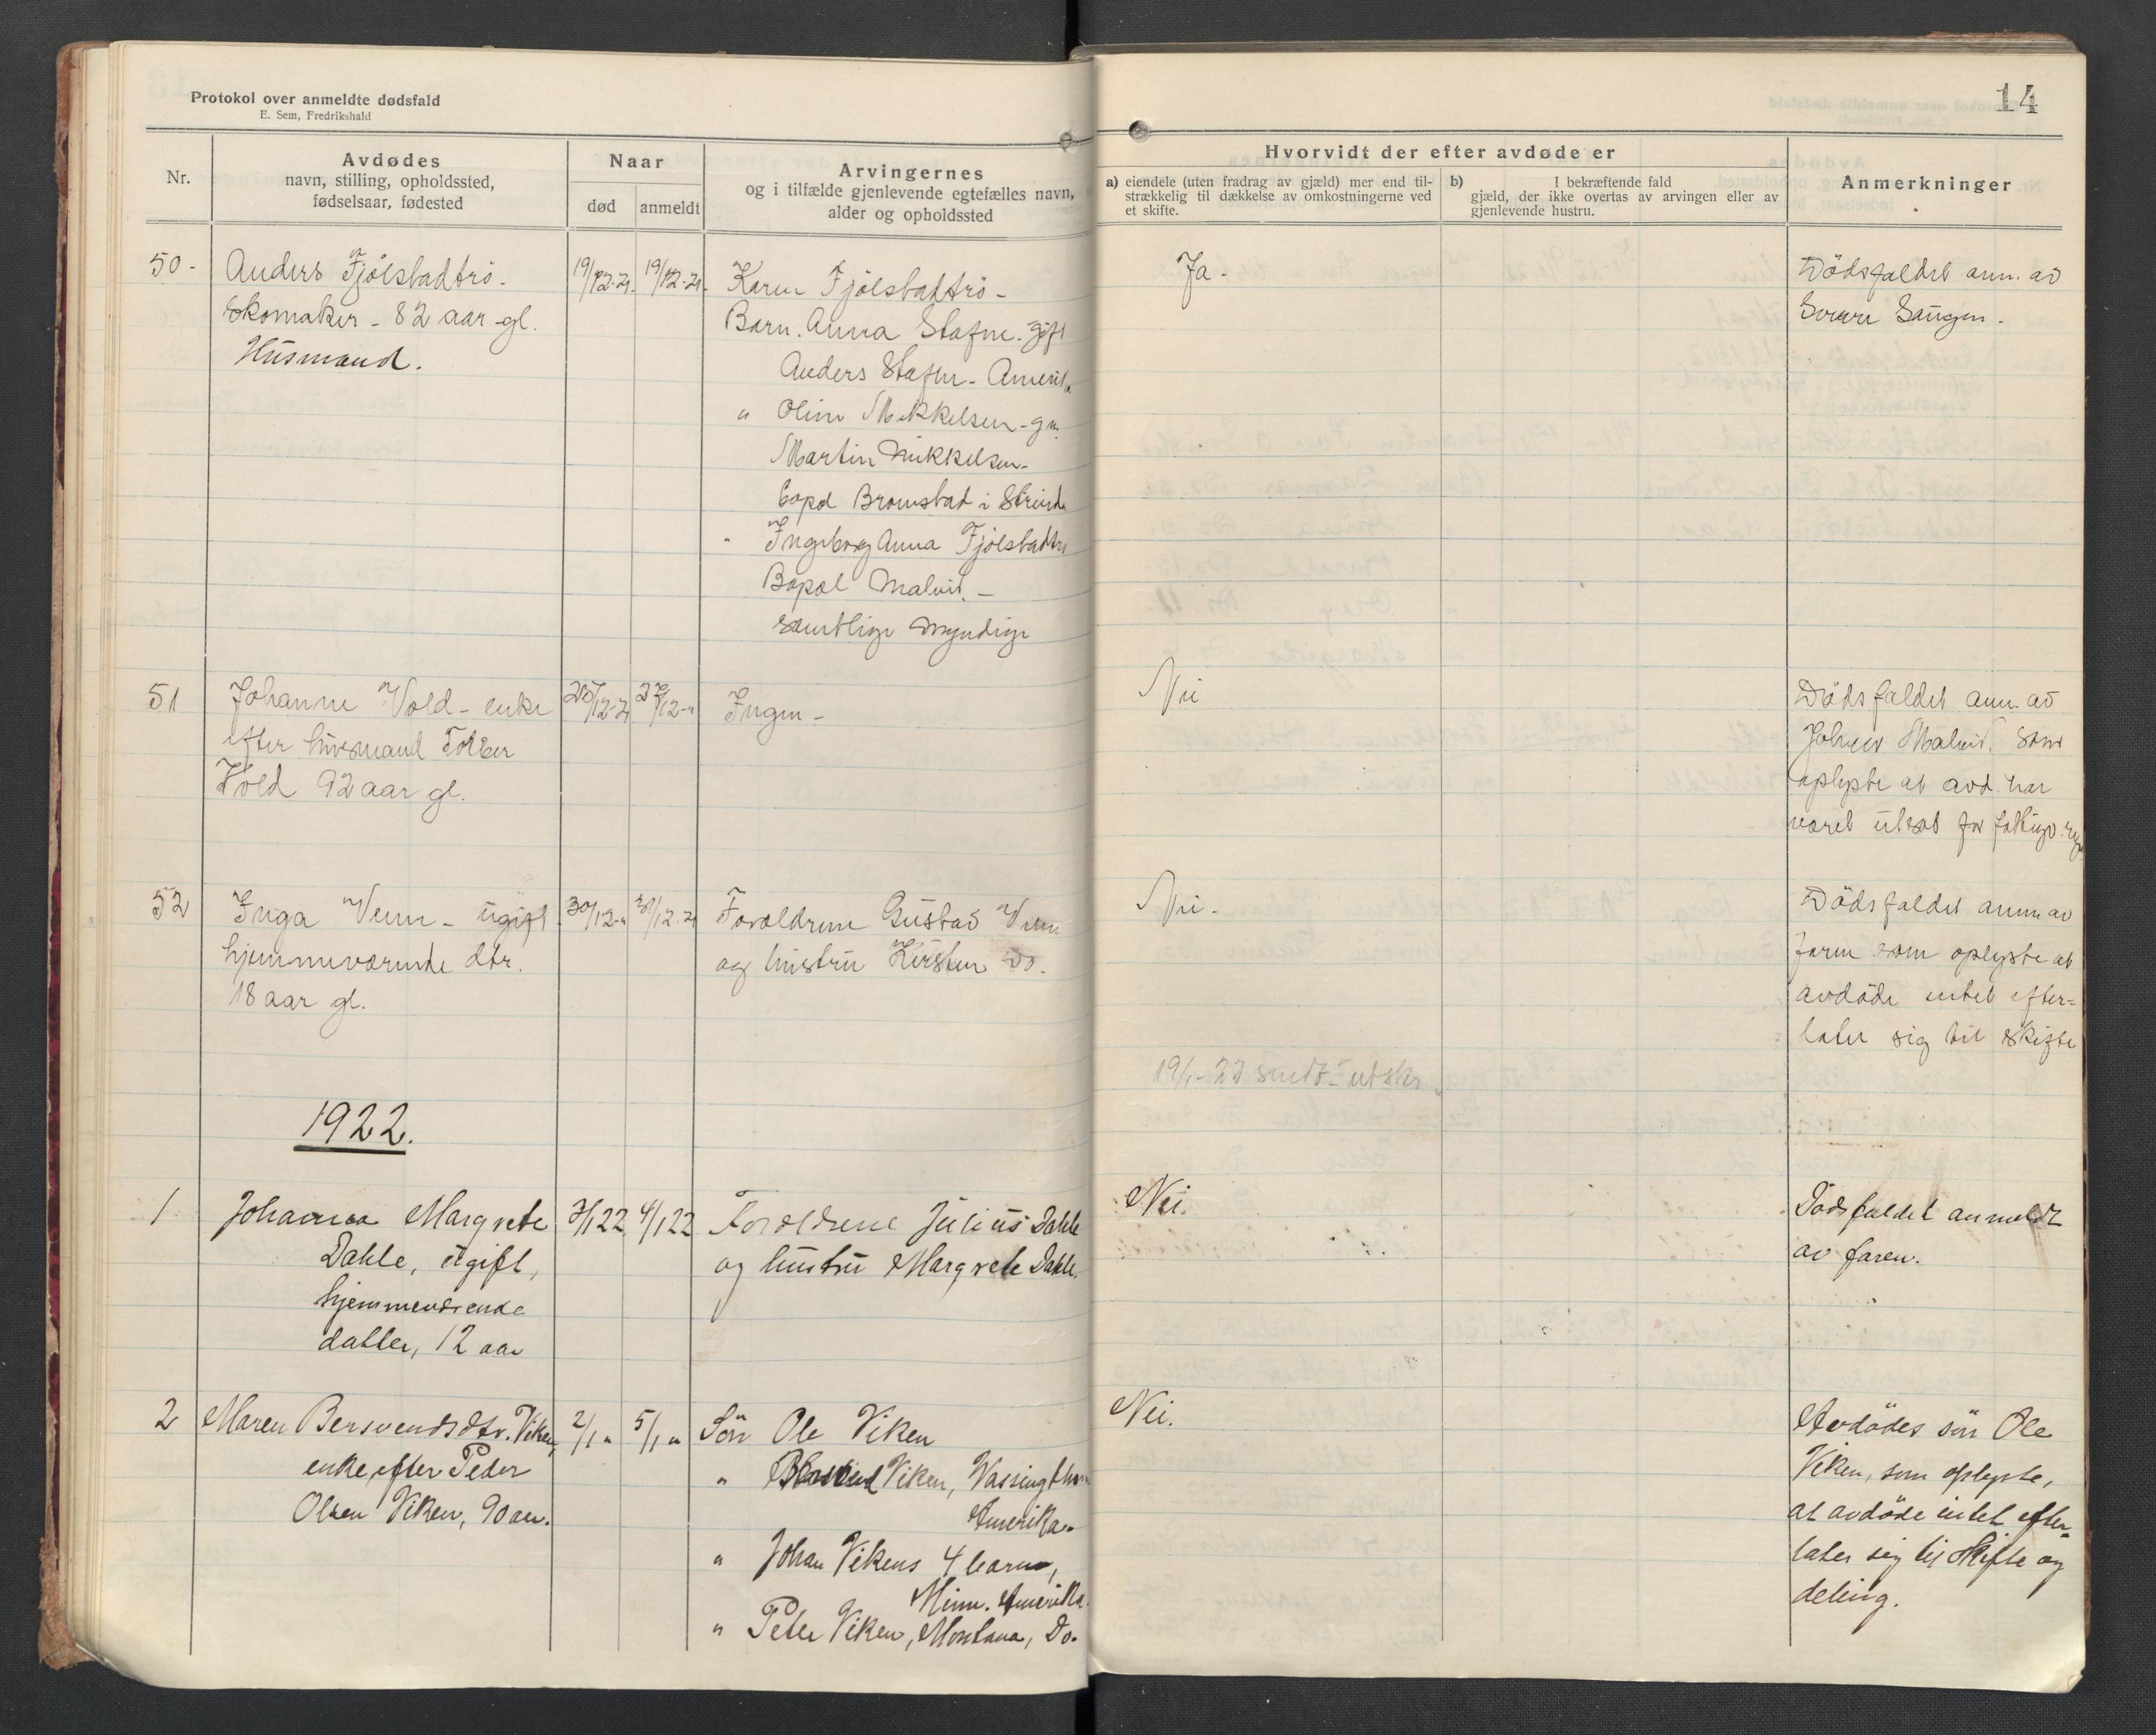 Protokol over anmeldte dødsfald
E. Sem, Fredrikshald
14
Nr.
Avdødes
navn, stilling, opholdssted,
fødselsaar, fødested
Naar
død
anmeldt
Arvingernes
og i tilfælde gjenlevende egtefælles navn,
alder og opholdssted
Hvorvidt der efter avdøde er
a) eiendele (uten fradrag av gjæld) mer end til-
strækkelig til dækkelse av omkostningerne ved
et skifte.
b) I bekræftende fald
gjæld, der ikke overtas av arvingen eller av
gjenlevende hustru.
Anmerkninger
50-
Anders Fjölstadtrö-
Skomaker - 82 aar gl.
Husmand.
19/12-21. 19/12-21.
Karen Fjölstadtrö-
Barn. Anna Stafne. gift
Anders Stafne - Amerika
" Oline Mikkelsen - gm.
Martin Mikkelsen-
bopæl Bromstad i Strinda
" Ingeborg Anna Fjölstadtrö
Bopæl Malvik. -
samtlige myndige
Ja-
Dödsfaldet anm. av
Sverre Saugen-
51
Johanne Vold - enke
efter husmand Tolber
Vold 92 aar gl.
25/12-21 27/12-"
Ingen-
Nei
Dödsfaldet anm. av
Malvik. som
oplyste at avd. har
været utsat for
52
Inga Venn - ugift
hjemmeværende dtr.
18 aar gl.
30/12-" 31/12-21
Forældrene Gustav Venn
og hustru Kirsten Do.
Nei-
Dödsfaldet anm av
faren som oplyste at
avdöde intet efter=
later sig til skifte
19/1-22 sendt utskr
1922.
1
Johanna Margrete
Dahle, ugift,
hjemmeværende
datter, 12 aar
3/1 22 4/1 22
Forældrene Julius Dahle
og hustru Margrete Dahle.
Nei.
Dödsfaldet anmeldt
av faren.
2
Maren Bersvendsdtr. Viken,
enke efter Peder
Olsen Viken, 90 aar.
2/1 " 5/1 "
Sön Ole Viken
" Viken, Wassingthon
Amerika.
" Johan Vikens 4 barn,
Minn. Amerika.
" Peter Viken, Montana, Do.
Nei.
Avdödes sön Ole
Viken, som oplyste,
at avdöde intet efter=
later sig til skifte og
deling.